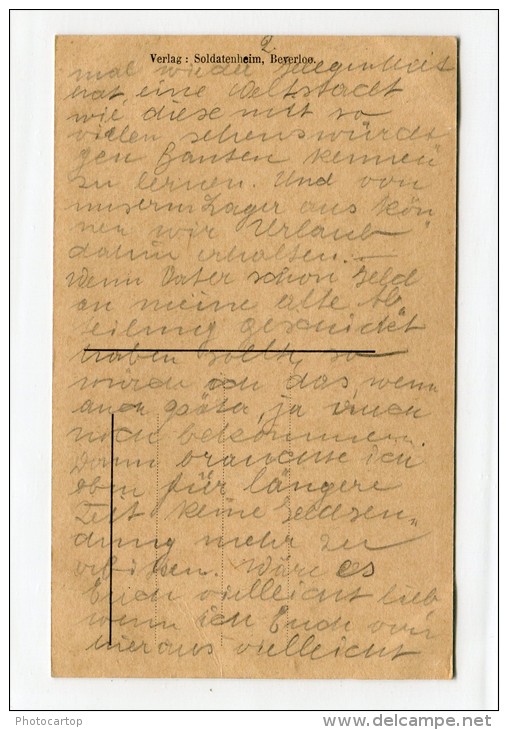 2.
Verlag : Soldatenheim, Beverloo.
mal wieder Gelegenheit
hat, eine Weltstadt
wie diese mit so
vielen sehenswürdi
gen Bauten kennen
zu lernen. Und von
unserm Lager aus kön
nen wir Urlaub
dahin erhalten. —
Wenn Vater schon Geld
an meine alte Ab
teilung geschickt
haben sollte, so
würde ich das, wenn
auch später, ja
noch bekommen.
Dann brauchte ich
eben für längere
Zeit keine Geldsen„
dung mehr zu
erbitten. Wäre es
Euch vielleicht lieb
wenn ich Euch von
hieraus vielleicht
Photocartop
www.delcampe.net